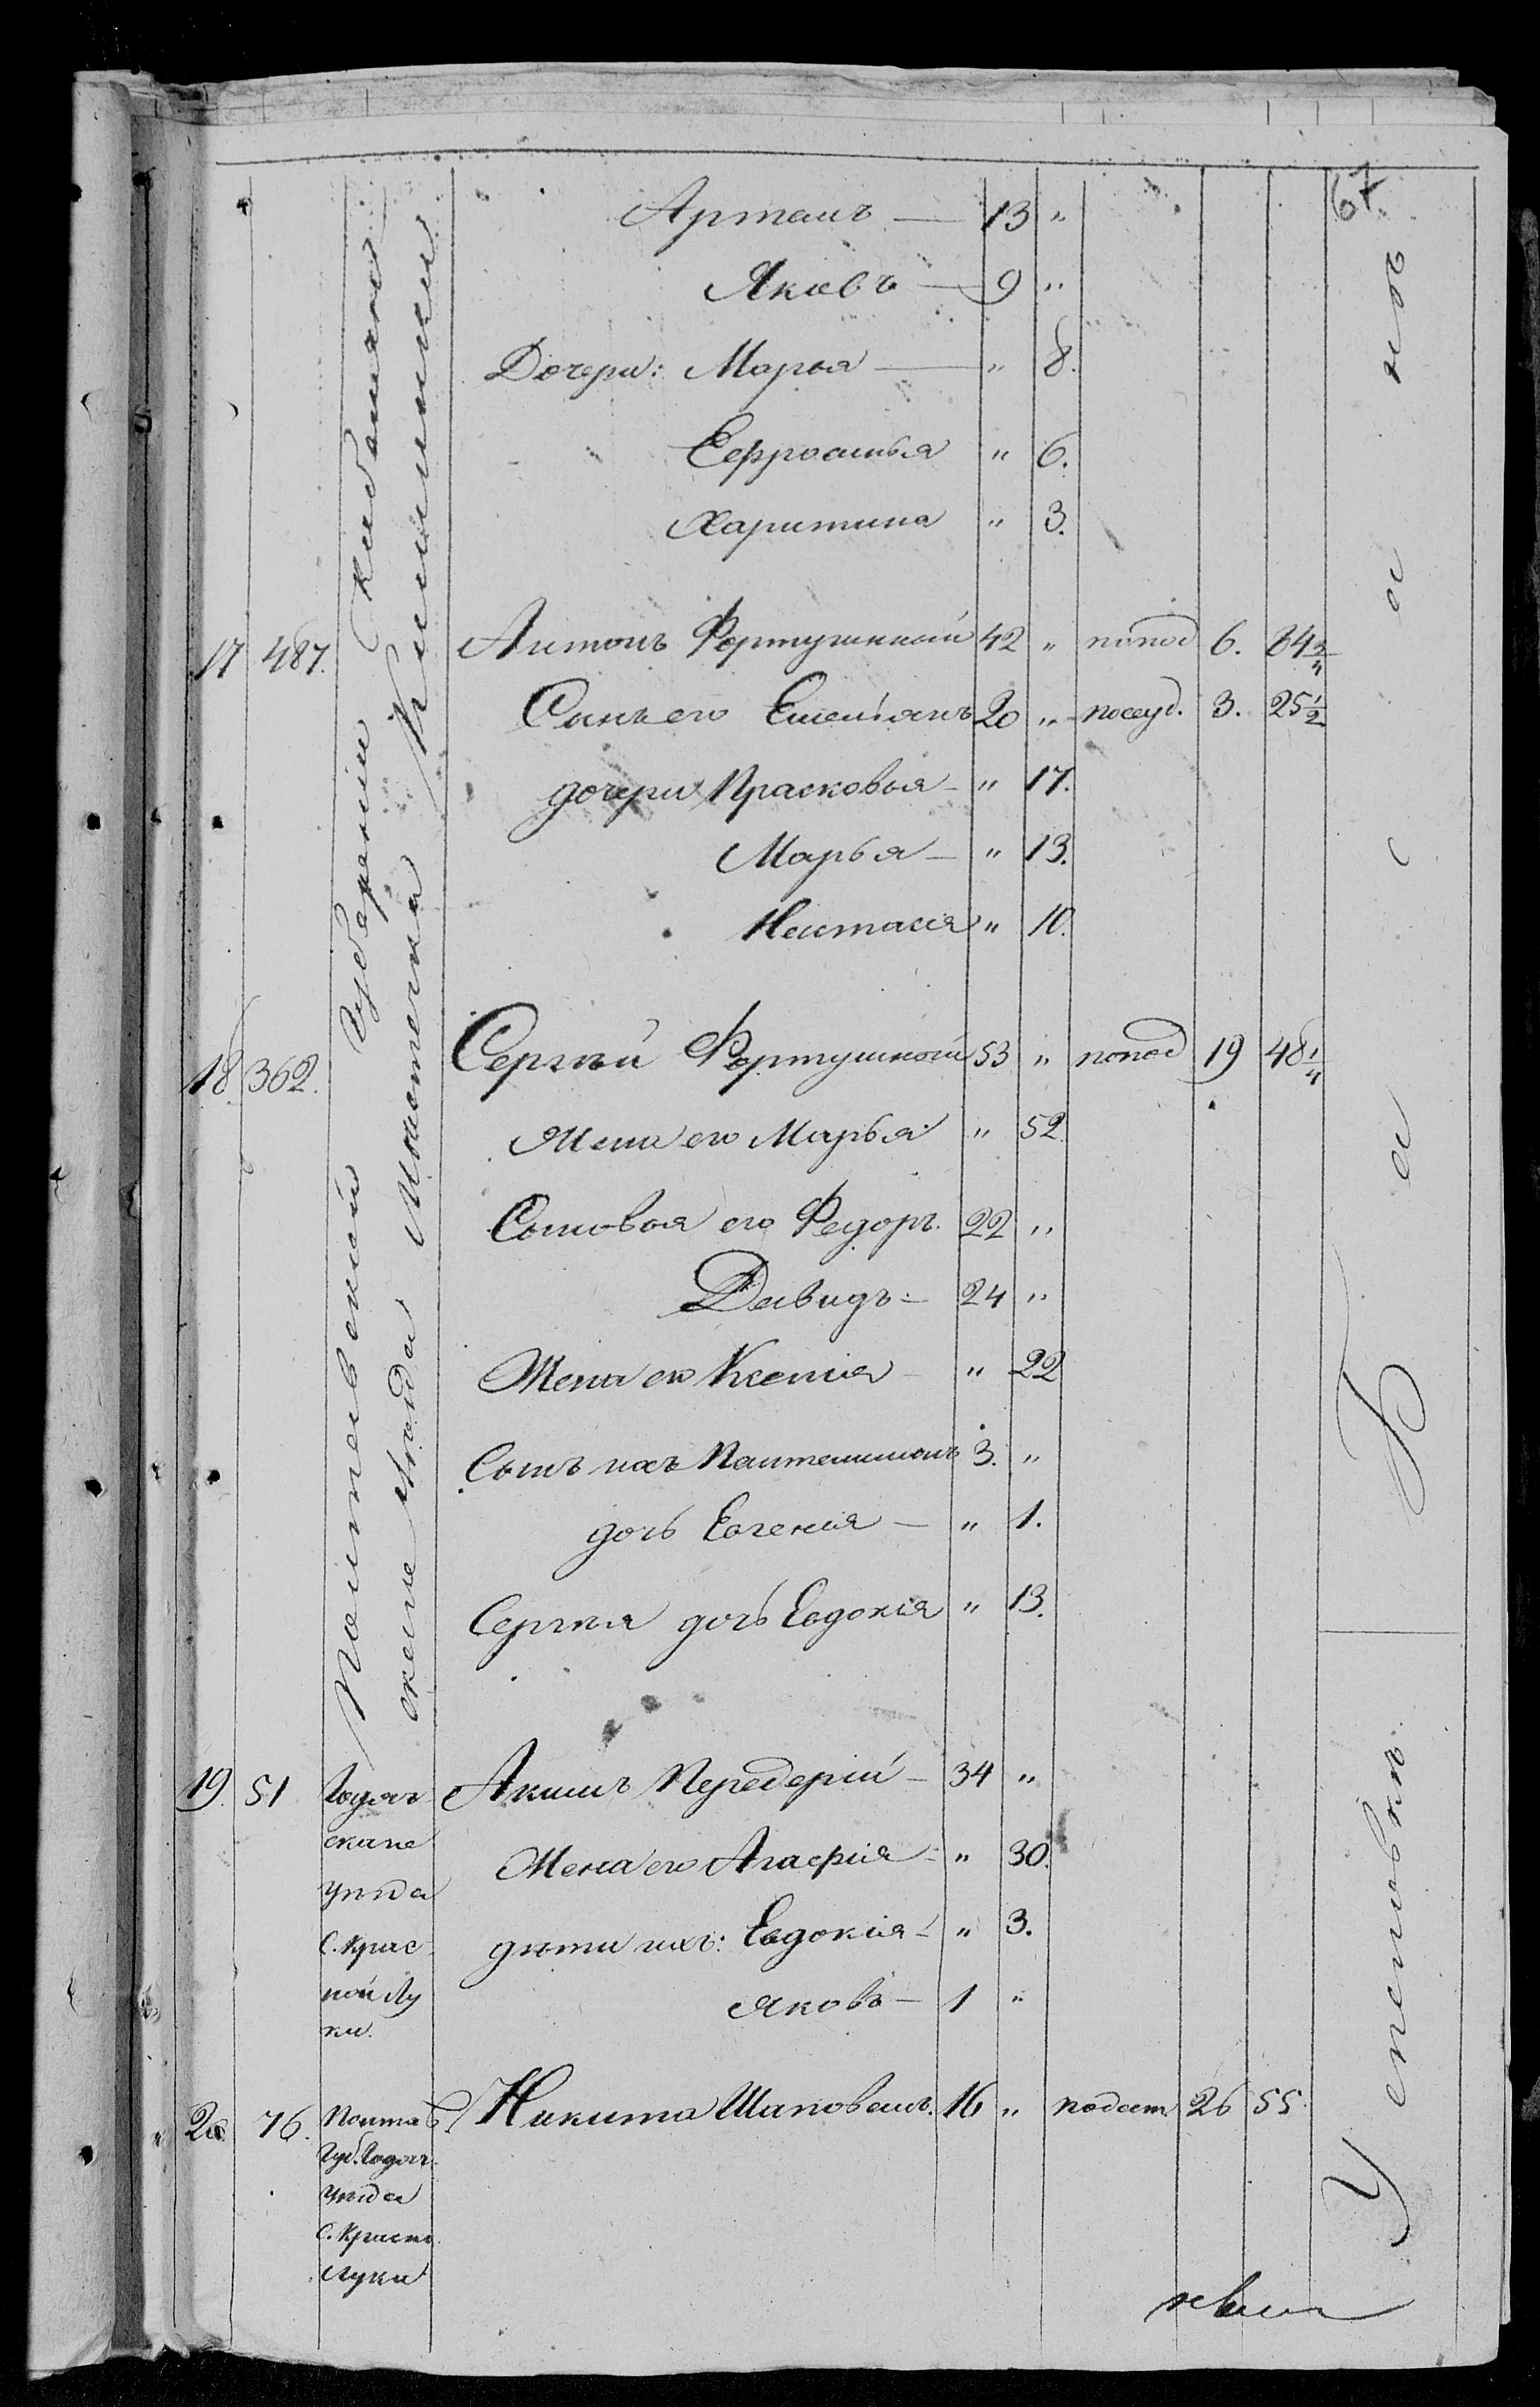 67
Артемъ — 13 "
Яковъ — 9 "
Дочери: Марья — " 8.
Евфросинья " 6.
Харитина " 3.
17 487. Антонъ Фортушный 42 " попод 6. 84 3/4
Сынъ его Емельянъ 20 " посеуд. 3. 25 1/2
дочери Прасковья — " 17.
Марья — " 13.
Настасія " 10.
Полтавской Губерніи Кобеляко
скаго уѣзда Мѣстечка Кишинки
18 362. Сергѣй Фортушной 53 " попод 19 48 1/4
Жена его Марья " 52.
Сыновья его Федоръ. 22 "
Давидъ — 24 "
Жена его Ксенія — " 22
Сынъ ихъ Пантелимонъ 3. "
дочь Евгенія — " 1.
Сергѣя дочь Евдокія " 13.
19. 51 Акимъ Передерій — 34 "
Гадяч
скаго
уѣзда
с. Крас
ной Лу
ки.
Жена его Агафія — " 30.
дѣти ихъ: Евдокія — " 3.
Яковъ — 1 "
20 76. Никита Шаповалъ. 16 " 26 55.
Полтав.
Губ. Гадяч.
уѣзда
с. Красн.
Луки